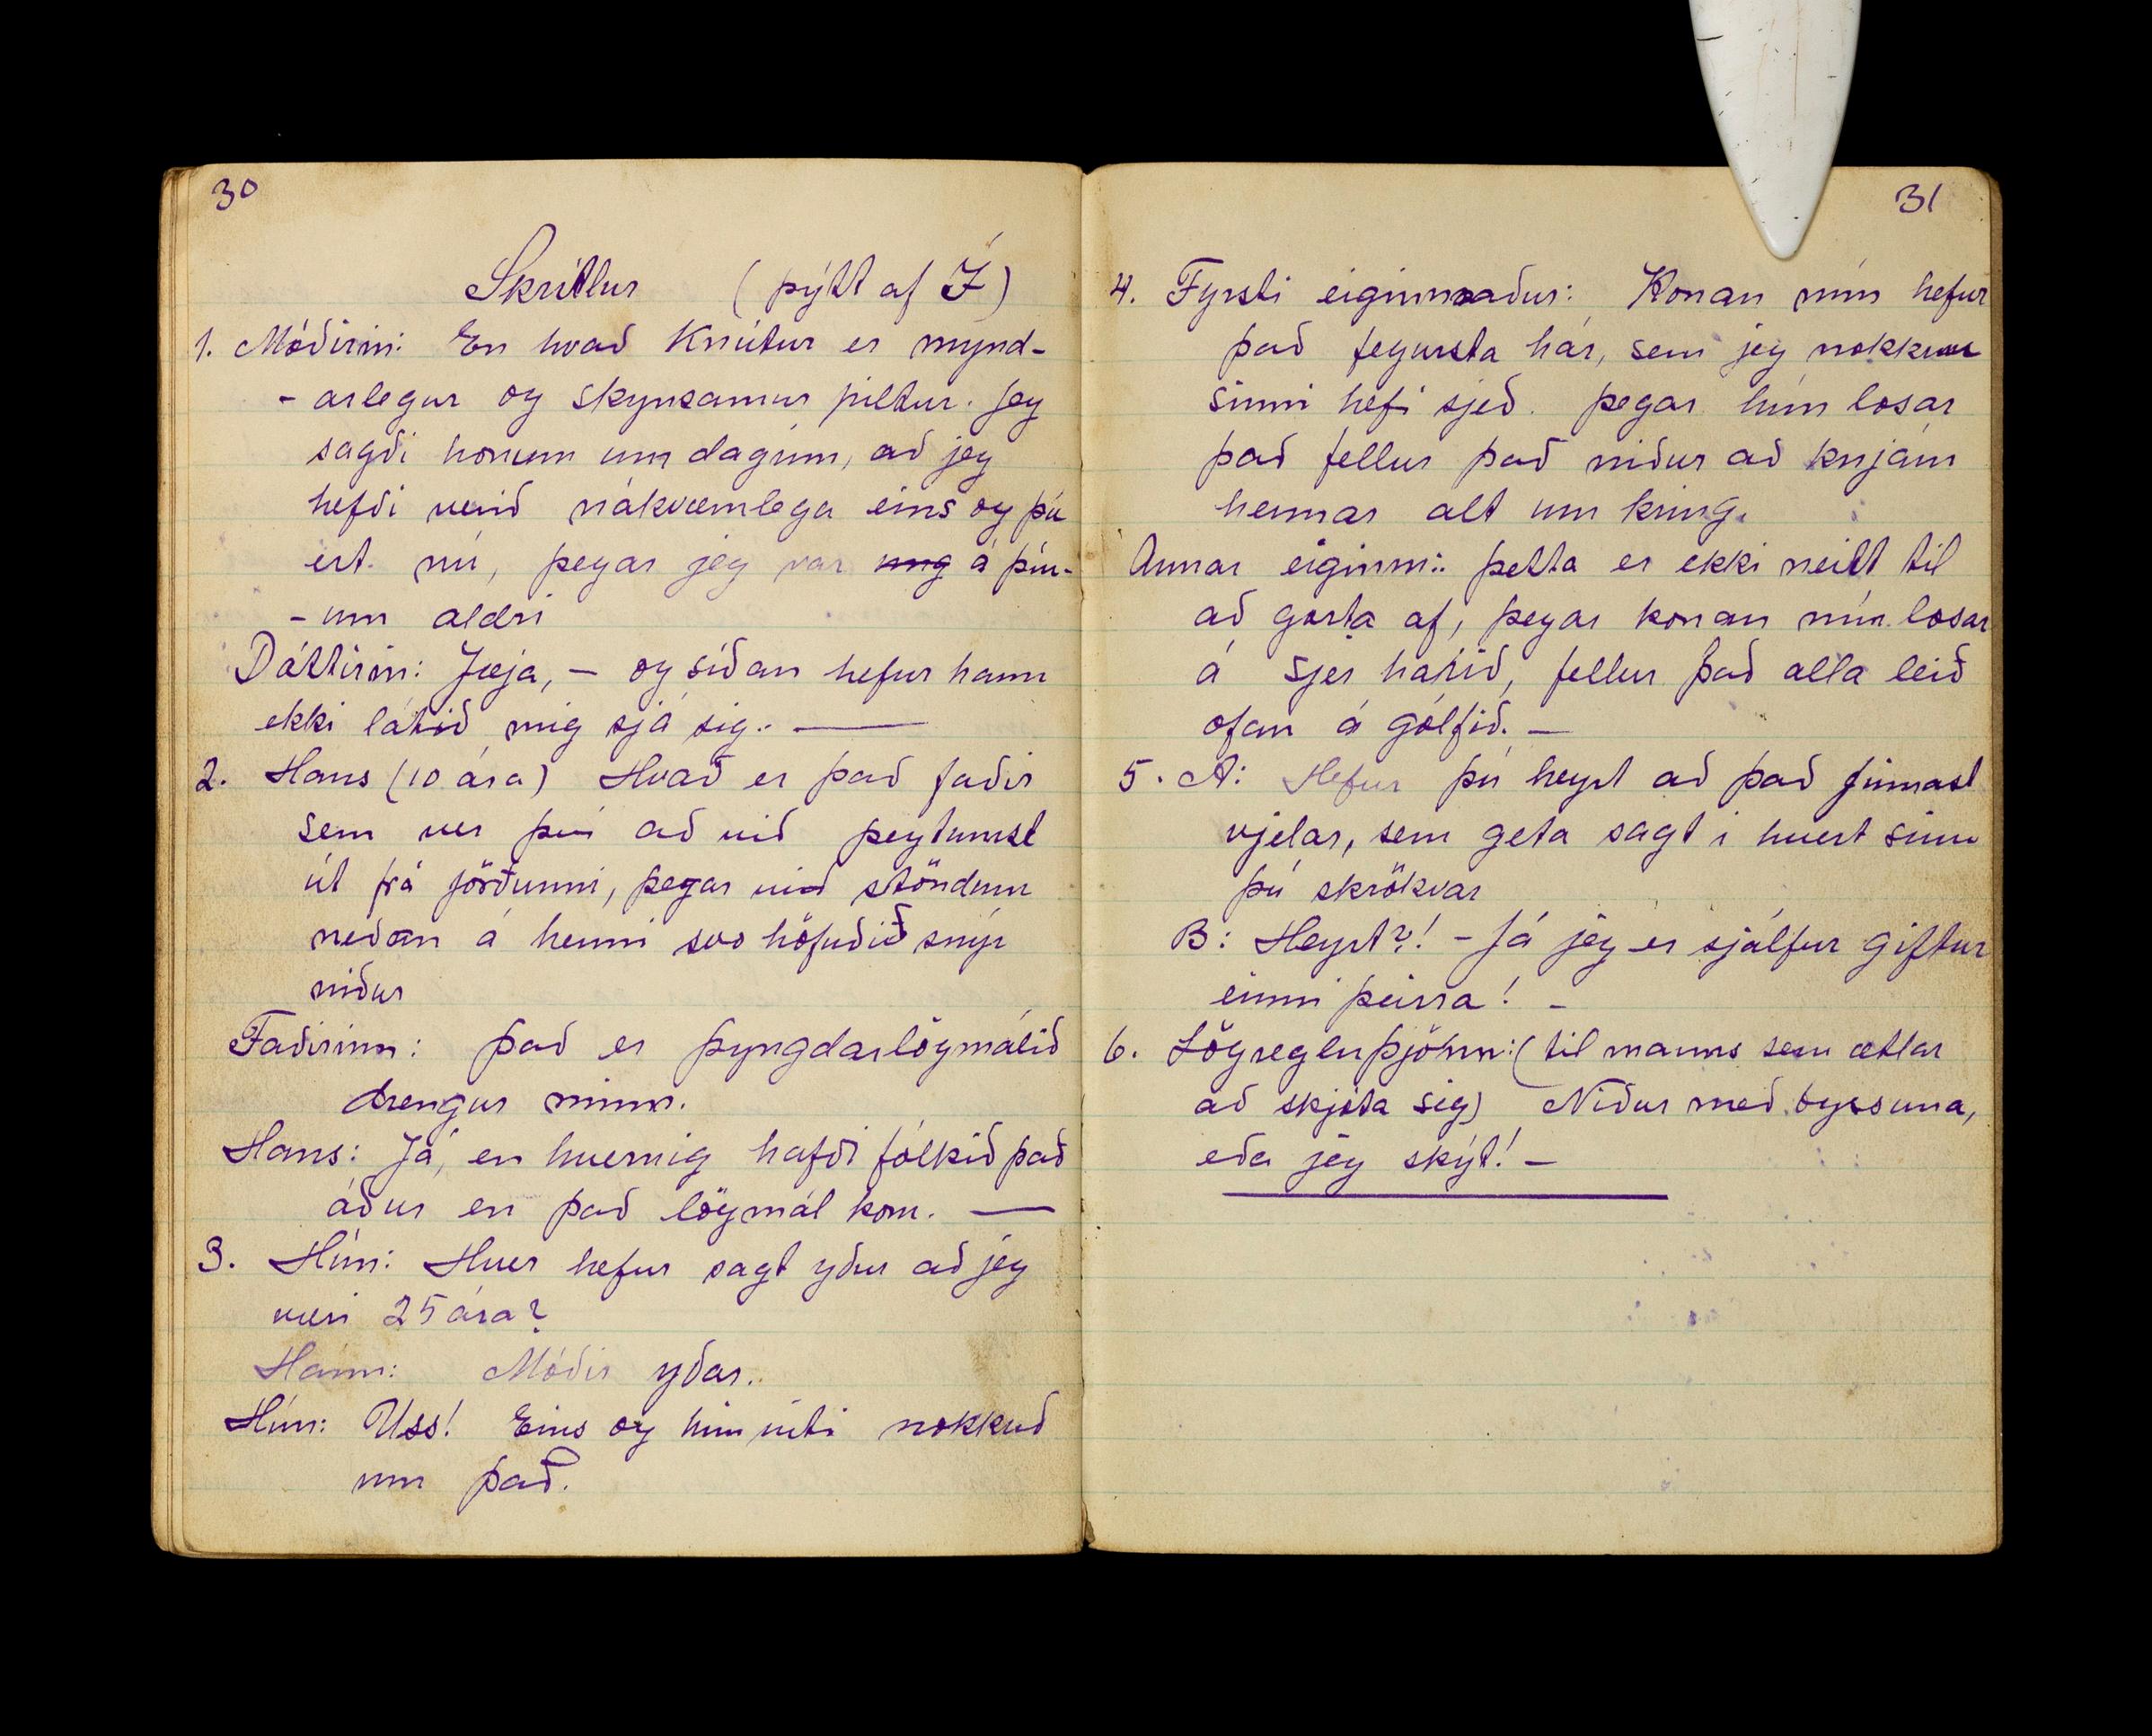 30
Skrítlur (þýtt af Í)
1. Móðirin: En hvað Knútur er mynd-
- arlegur og skynsamur piltur. Jeg
sagði honum um daginn, að jeg
hefði verið nákvæmlega eins og þú
ert nú, þegar jeg var ung á þín-
- um aldri
Dóttirin: Jæja, — og síðan hefur hann
ekki látið mig sjá sig. —
2. Hans (10 ára) Hvað er það faðir
sem ver því að við þeytumst
út frá jörðunni, þegar við stöndum
neðan á henni svo höfuðið snýr
niður
Faðirinn: það er þyngdarlögmálið
drengur minn.
Hans: Já, en hvernig hafði fólkið það
áður en það lögmál kom. —
3. Hún: Hver hefur sagt yður að jeg
væri 25 ára?
Hann: Móðir yðar.
Hún: Uss! Eins og hún viti nokkuð
um það.
31
4. Fyrsti eiginmaður: Konan mín hefur
það fegursta hár, sem jeg nokkru
sinni hefi sjeð. þegar hún losar
það fellur það niður að knjám
hennar alt um kring.
Annar eiginm.: þetta er ekki neitt til
að gorta af, þegar konan mín losar
á sjer hárið, fellur það alla leið
ofan á gólfið. —
5. A: Hefur þú heyrt að það finnast
vjelar, sem geta sagt í hvert sinn
þú skrökvar
B: Heyrt?! - Já jeg er sjálfur giftur
einni þeirra! —
6. Lögregluþjónn: (til manns sem ætlar
að skjóta sig) Niður með byssuna,
eða jeg skýt! —